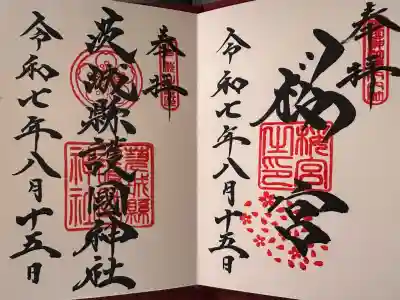 奉拝
桜宮
桜宮之印
令和七年八月十五日
奉拝
茨城縣護國神社
茨城縣護國神社
令和七年八月十五日